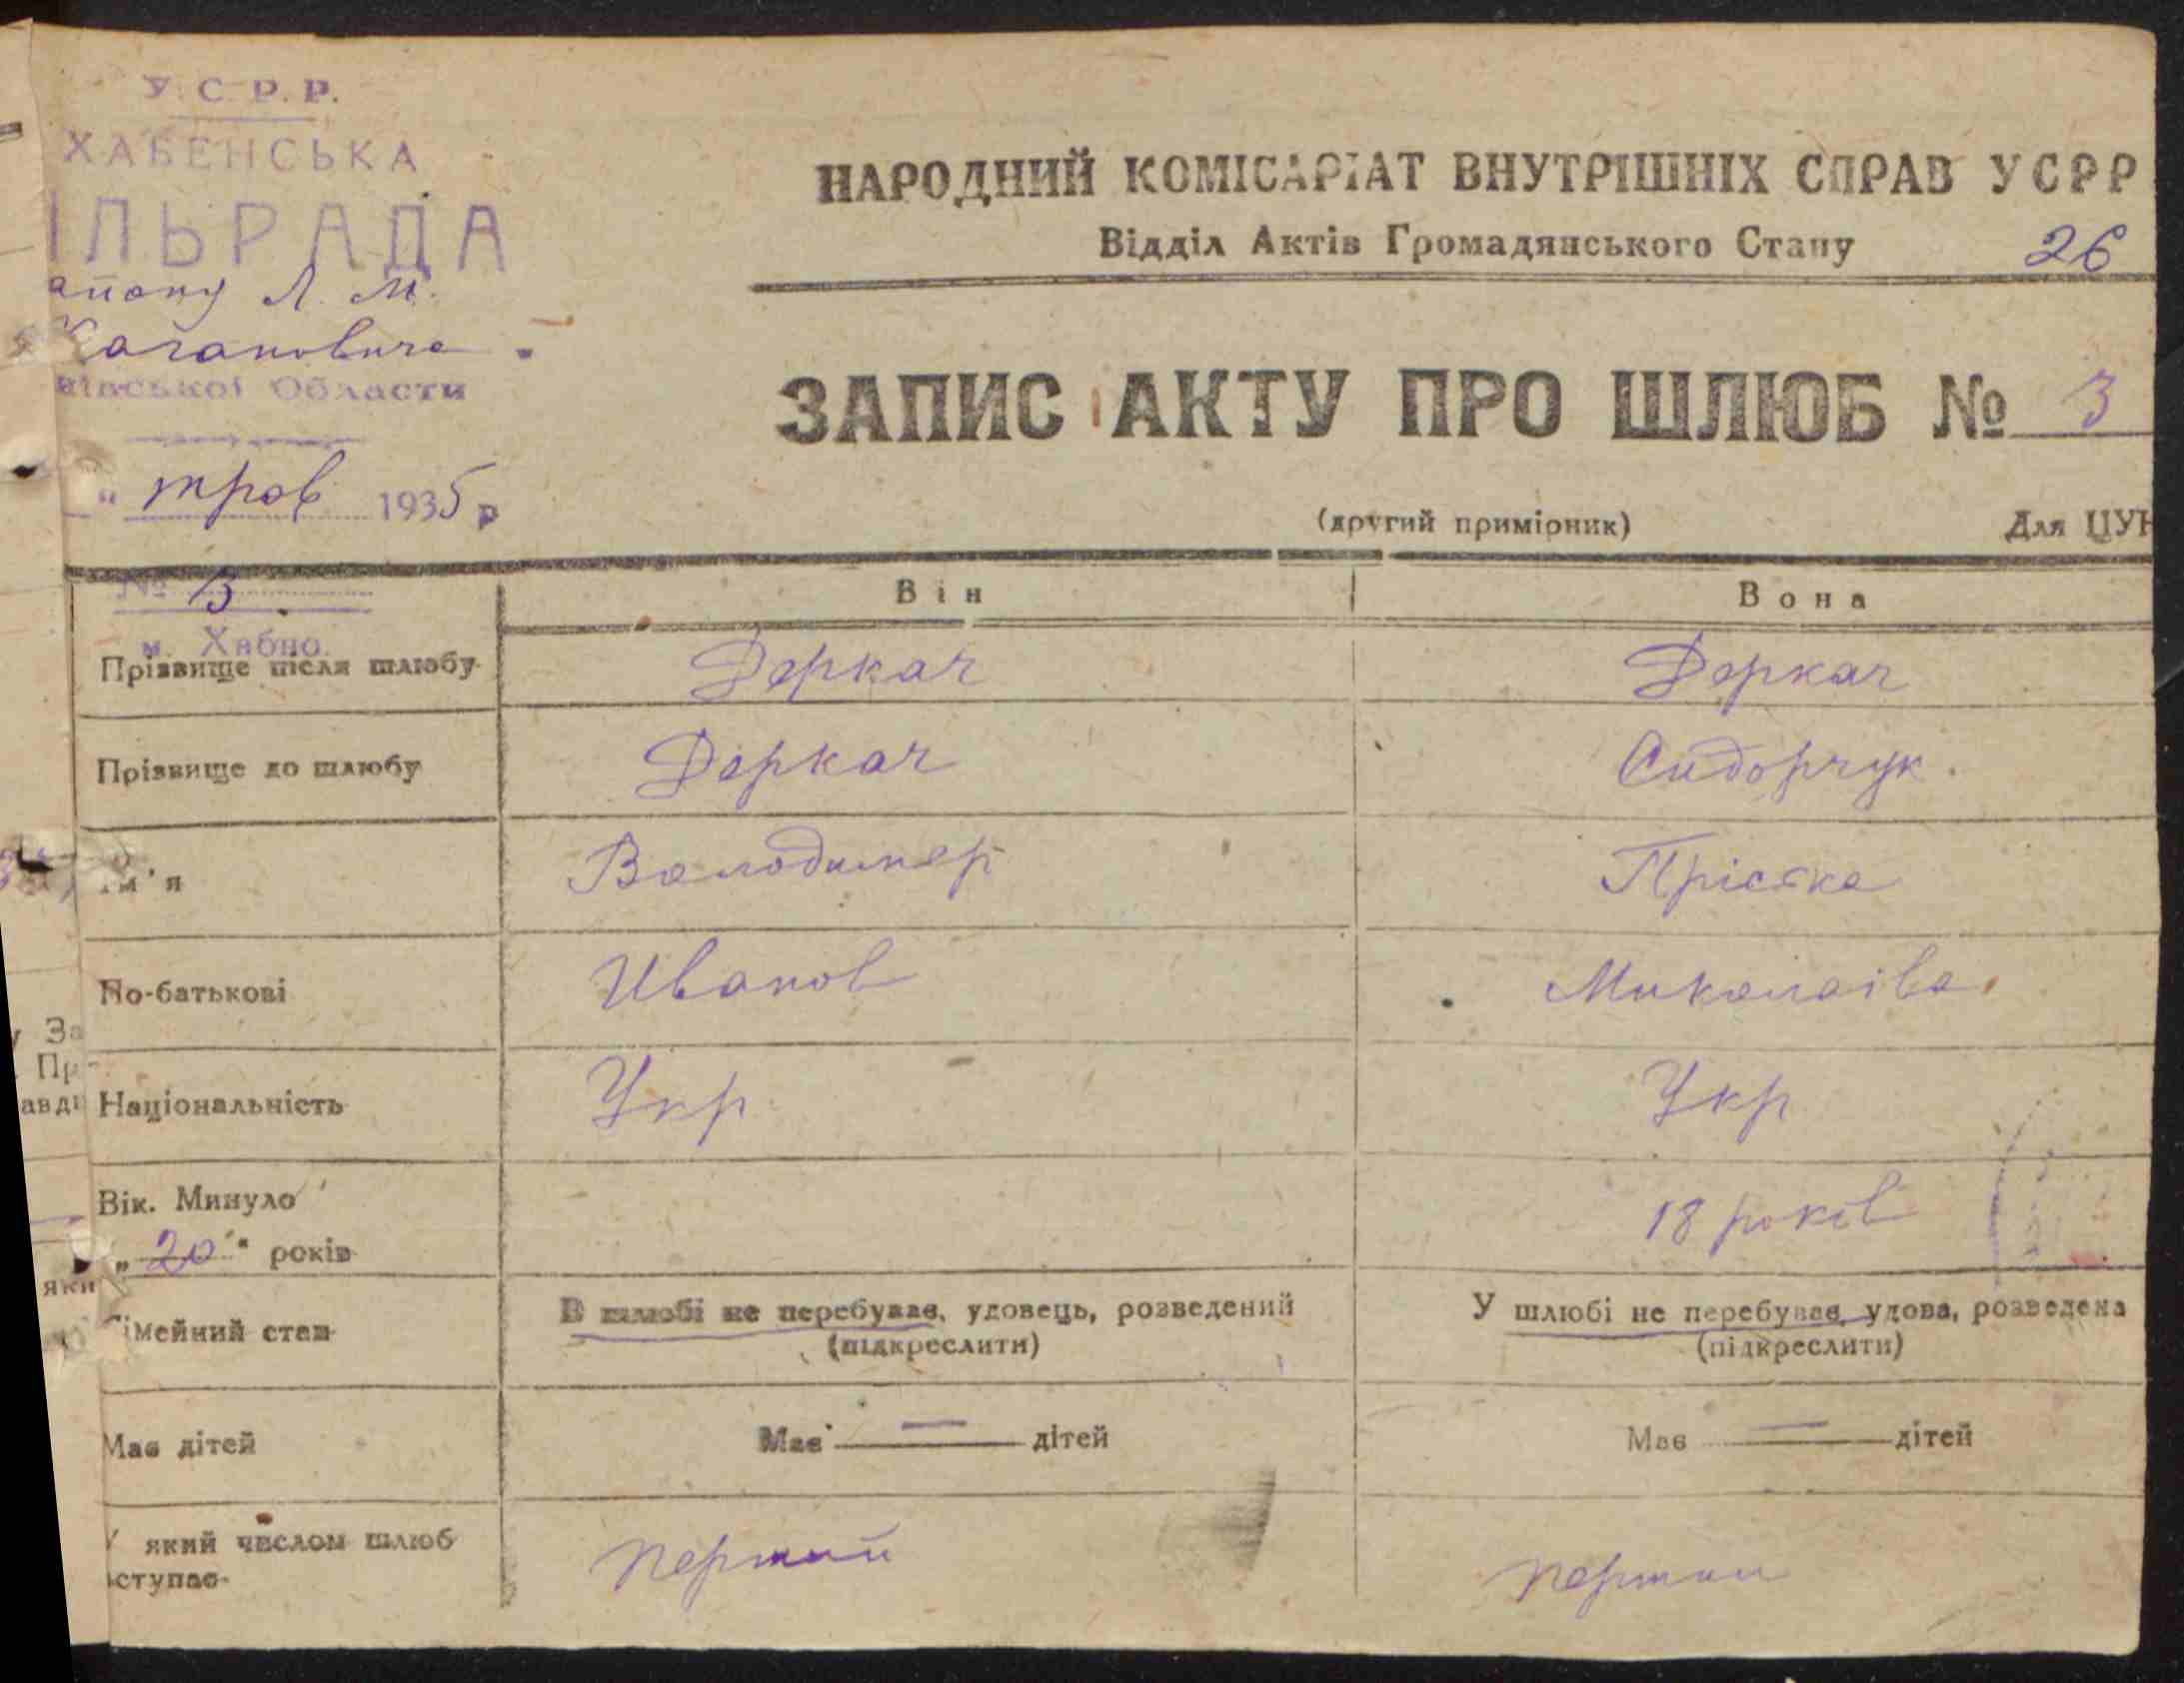 У. С. Р. Р.
ХАБЕНСЬКА
ІЛЬРАДА
айону Л. М.
Кагановича
ївської Области
" трав 1935 р
№ 3
м. Хабно.
НАРОДНИЙ КОМІСАРІАТ ВНУТРІШНІХ СПРАВ УСРР
Відділ Актів Громадянського Стану 26
ЗАПИС АКТУ ПРО ШЛЮБ № 3
(другий примірник) Для ЦУН
Він Вона
Прізвище після шлюбу Деркач Деркач
Прізвище до шлюбу Деркач Сидорчук.
Ім'я Володимер Пріська
По-батькові Иванов Миколаіва.
Національність Укр Укр
Вік. Минуло
„ 20 " років 18 років
імейний стан В шлюбі не перебував, удовець, розведений У шлюбі не перебуває, удова, розведена
(підкреслити) (підкреслити)
Має дітей Має — дітей Має — дітей
У який числом шлюб
вступає Перший Першии
у За
Пр
авді
яки